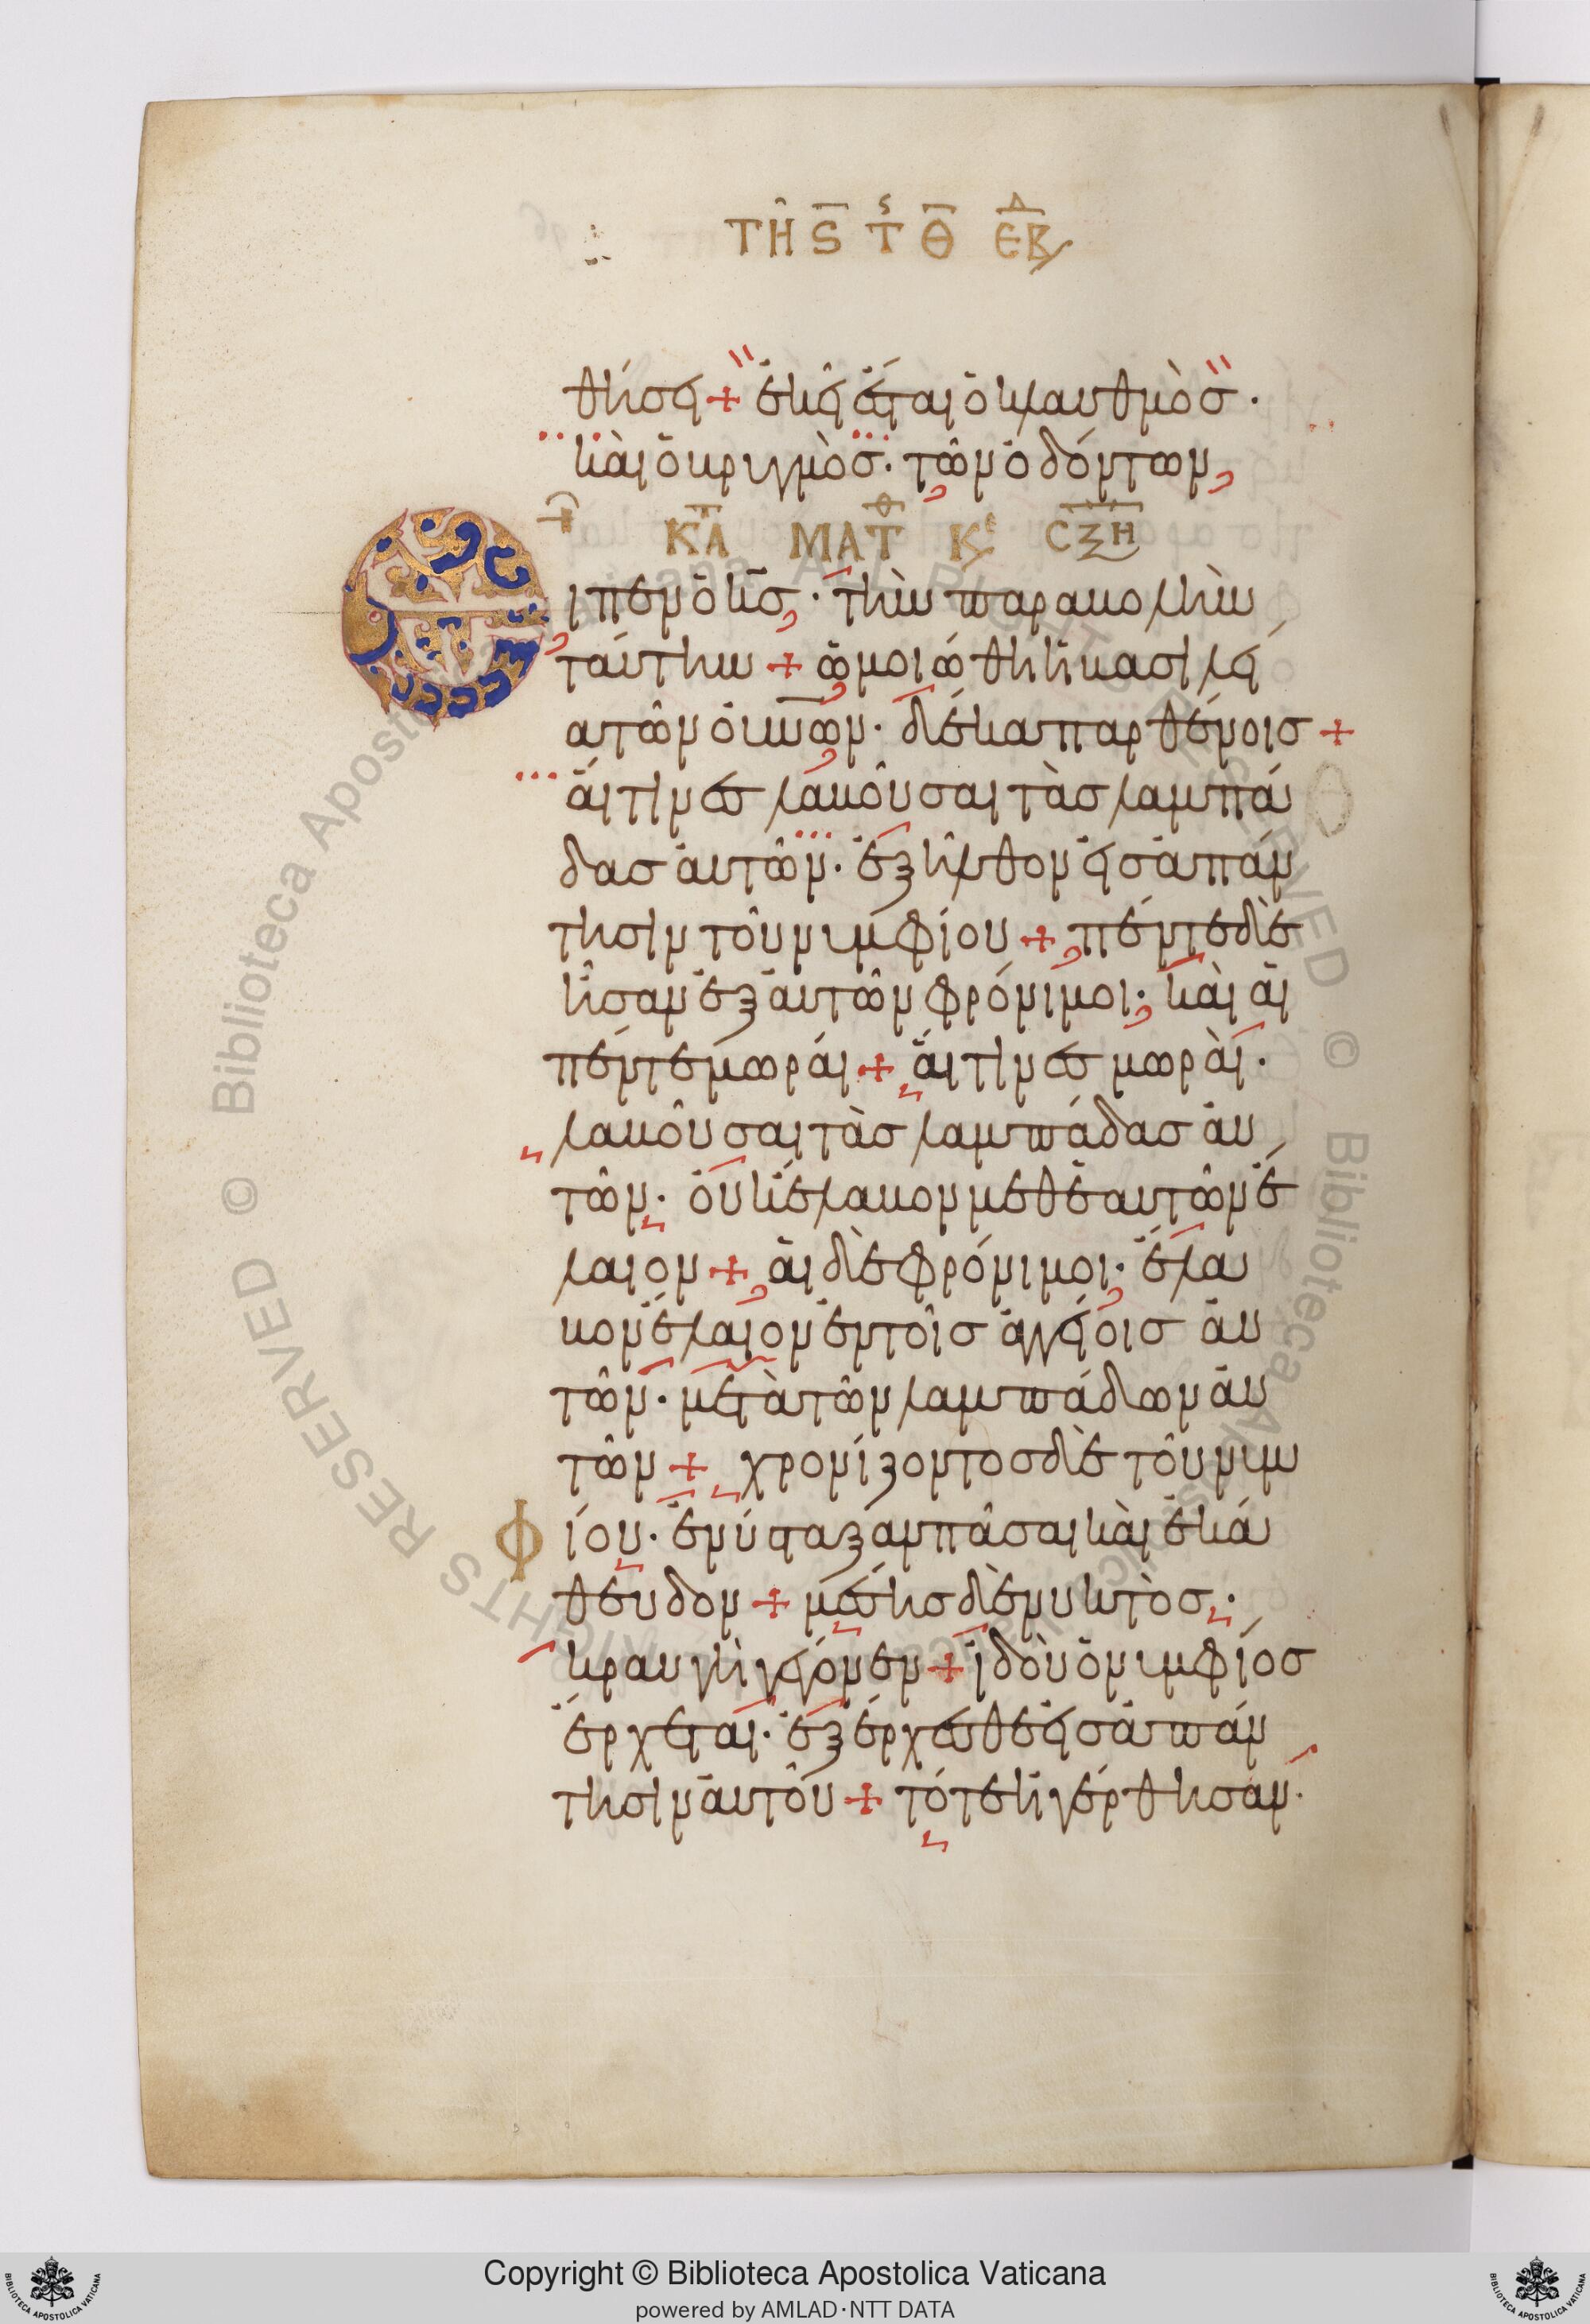 ΤΗ̂ Ϛ̅ Τ̅ Θ̅ ΕΒΔ
θήσει + ἐκεῖ ἔσται ὁ κλαυθμὸσ·
καὶ ὁ βριγμὸσ· τῶν ὀδόντων,
ΚΑ ΜΑΤΘ Κε ΣΞΗ
ιπεν ὁ κσ̅· τὴν παραβολὴν
ταύτην + ὡμοιώθη ἡ βασιλεί
α τῶν οὐνῶν· δέκα παρθένοισ +
αἵτινεσ λαβοῦσαι τὰσ λαμπά
δασ αὐτῶν· ἐξῆλθον εἰσ ἀπάν
τησιν τοῦ νυμφίου + πέντε δὲ
ἦσαν ἐξ αὐτῶν φρόνιμοι· καὶ αἱ
πέντε μωραί + αἵτινεσ μωραὶ·
λαβοῦσαι τὰσ λαμπάδασ αὐ
τῶν· οὐκ ἔλαβον μεθ ἑαυτῶν ἔ
λαιον + αἱ δὲ φρόνιμοι· ἔλα
βον ἔλαιον ἐν τοῖσ ἀγγείοισ αὐ
τῶν· μετὰ τῶν λαμπάδων αὐ
τῶν + χρονίζοντοσ δὲ τοῦ νυμ
φίου· ἐνύσταξαν πᾶσαι καὶ ἐκά
θευδον + μέσησ δὲ νυκτὸσ·
κραυγὴ γέγονεν + ἰδοὺ ὁ νυμφίοσ
ἔρχεται· ἐξέρχεσθε εἰσ ἀπάν
τησιν αὐτοῦ + τότε ἠγέρθησαν·
Copyright © Biblioteca Apostolica Vaticana
powered by AMLAD·NTT DATA